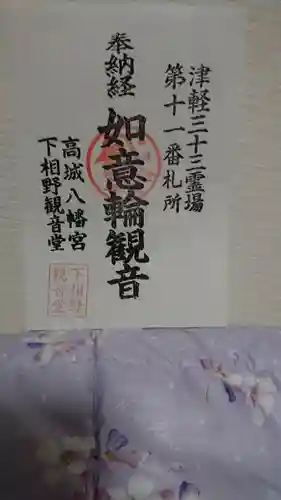 津軽三十三霊場
第十一番札所
奉納経
如意輪観音
高城八幡宮
下相野観音堂
下相野
観音堂